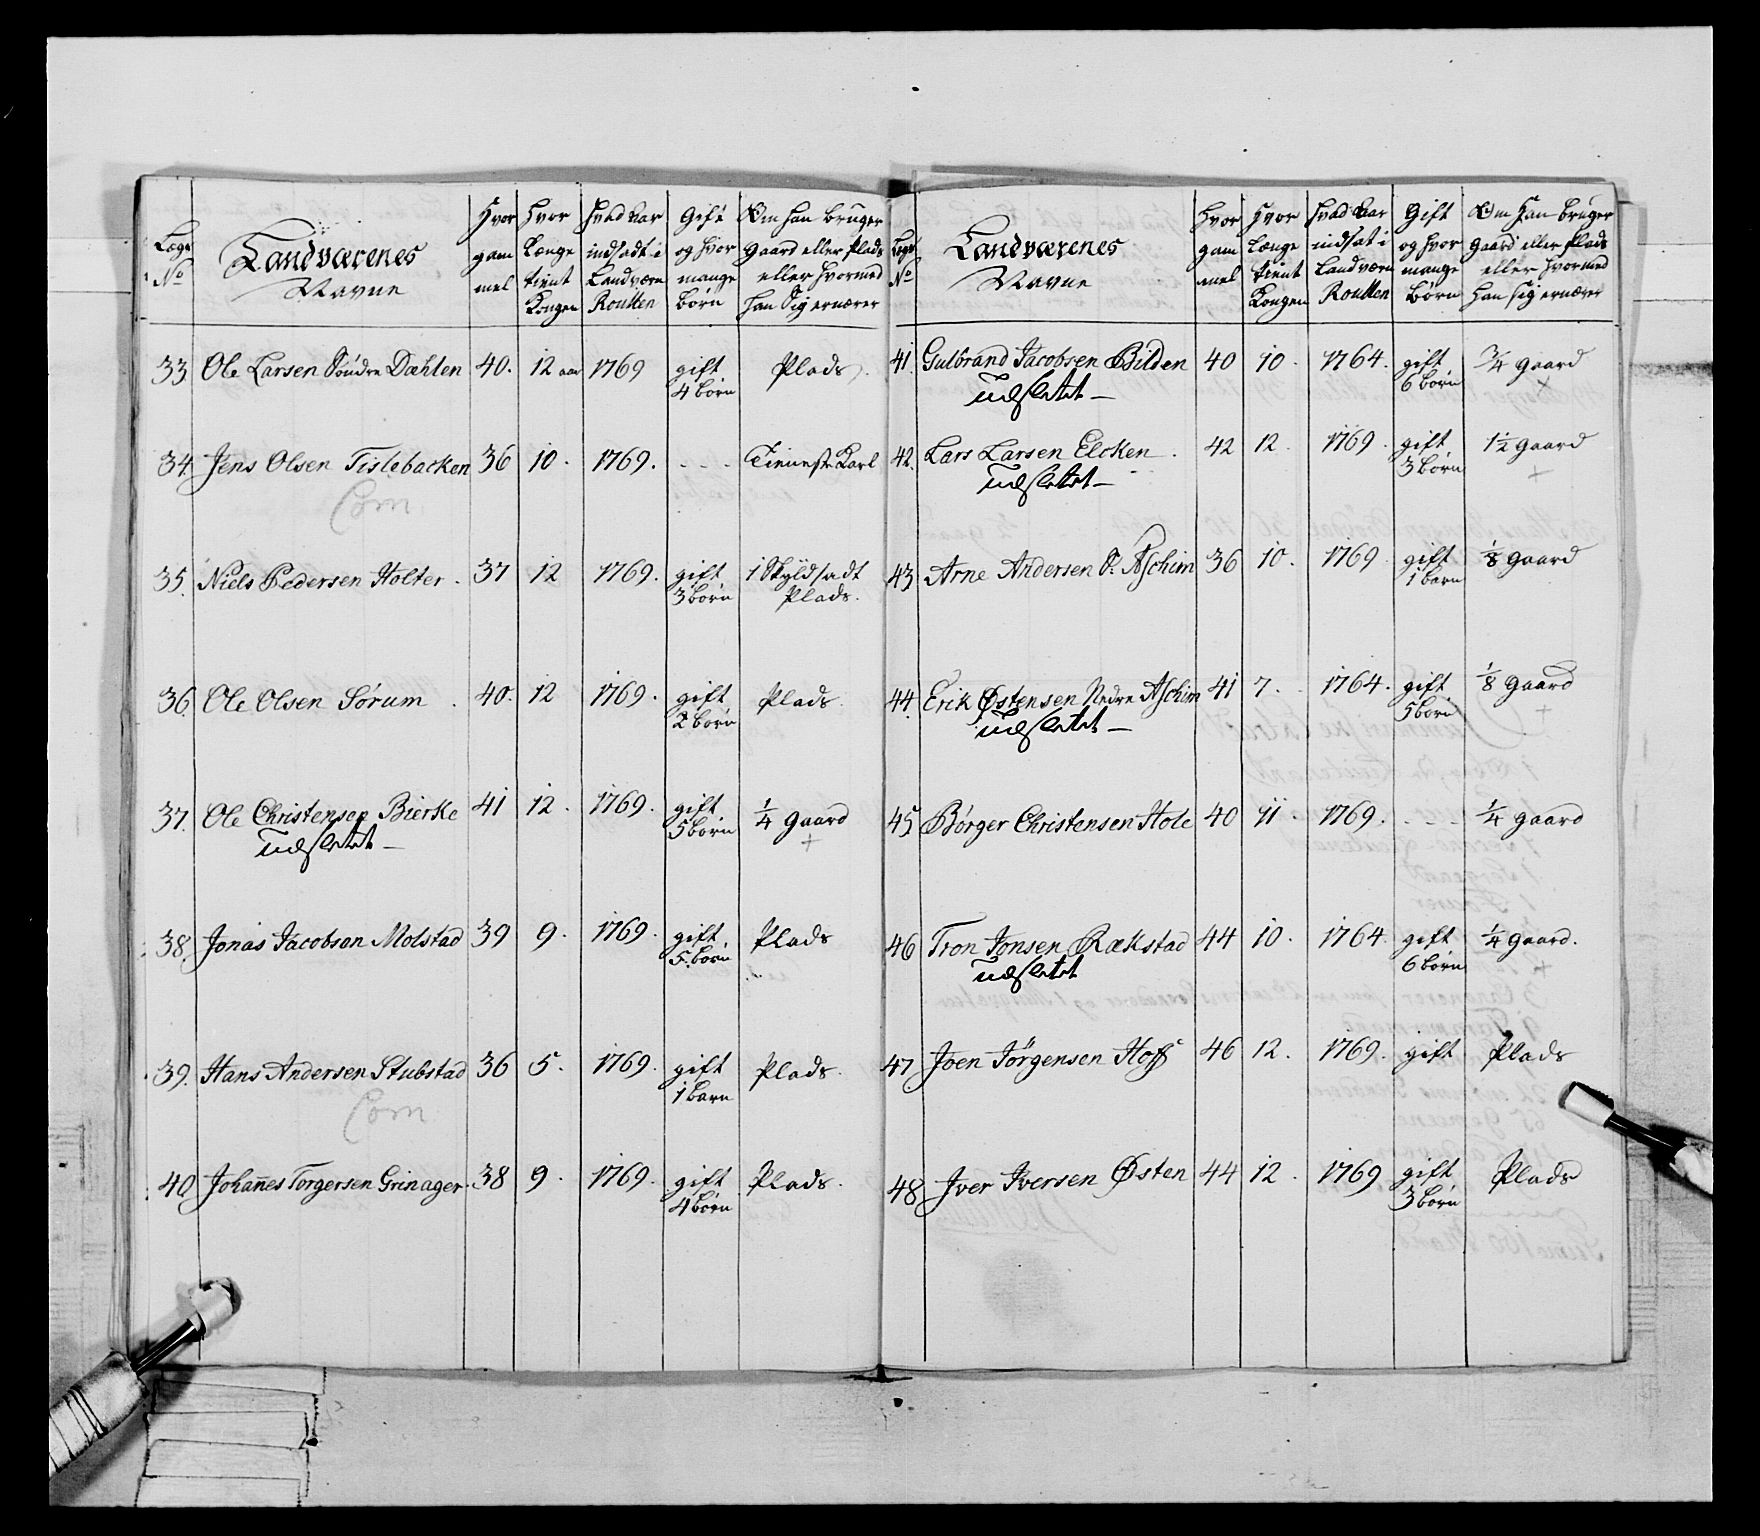 Lægs No | Landværenes Navne | Hvor gammel | Hvor længe tient Kongen | Hvad aar indsadt i Landværn Roullen | Gift og hvor mange børn | Om han bruger Gaard eller Plads eller hvormed han Sig ernærer
33 Ole Larsen Söndre Dæhlen 40. 12 aar 1769 gift Plads.
4 börn
34 Jens Olsen Tislebacken 36 10. 1769. - - - Tieneste Karl
Com
35. Niels Pedersen Holter. 37 12 1769. gift 1 Skyldsadt
3 börn Plads.
36. Ole Olsen Sørum. 40. 12 1769. gift Plads.
2 börn
37. Ole Christensen Bierke 41 12. 1769. gift 1/4 gaard
udsletet — 5 börn +
38. Jonas Jacobsen Molstad 39 9. 1769. gift Plads
5. börn
39. Hans Andersen Stubstad 36 5. 1769. gift Plads.
Com 1 barn
40 Johañes Torgersen Grinager. 38 9. 1769. gift Plads.
4 börn
Lægs No | Landværenes Navne | Hvor gammel | Hvor længe tient Kongen | Hvad aar indsat i Landværn Roullen | Gift og hvor mange børn | Om Han bruger Gaard eller Plads eller hvormed han sig ernærer
41. Gulbrand Jacobsen Bilden 40 10. 1764. gift 3/4 gaard
udsletet — 6 börn +
42. Lars Larsen Elcken. 42 12. 1769. gift 1 1/2 gaard
udsletet — 3 börn +
43 Arne Andersen Ö. Aschim 36 10. 1769. gift 1/8 gaard
1 barn
44. Erik Østensen Nedre Aschim 41 7. 1764. gift 1/8 gaard
udsletet — 5 börn +
45 Børger Christensen Hole 40 11. 1769. - - - 1/4 gaard
46 Tron Jonsen Rækstad 44 10. 1764. gift 1/4 gaard.
udsletet 6 börn +
47. Joen Jörgensen Hoff 46 12. 1769. gift Plads
48. Jver Jversen Østen 44 12. 1769 gift Plads
3 börn